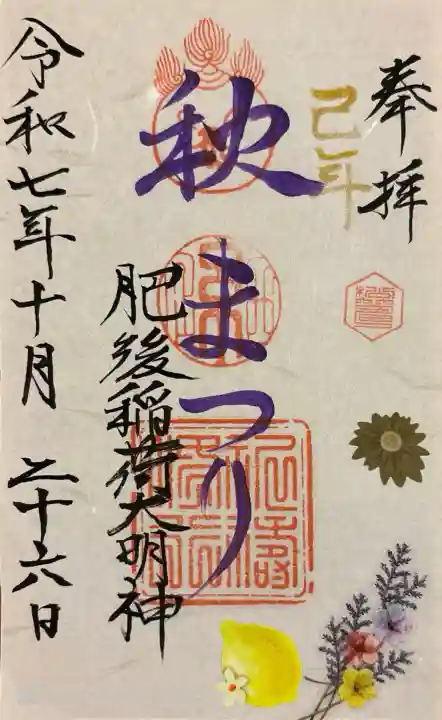 奉拝
己年
秋まつり
肥後稲荷大明神
令和七年十月 二十六日